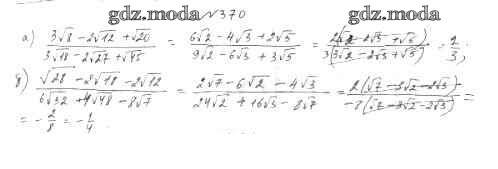 gdz.moda №370 gdz.moda
а) (3√8 - 2√12 + √20)/(3√18 - 2√27 + √45) = (6√2 - 4√3 + 2√5)/(9√2 - 6√3 + 3√5) = 2(3√2 - 2√3 + √5)/3(3√2 - 2√3 + √5) = 2/3;
б) (√28 - 2√18 - 2√12)/(6√32 + 4√48 - 8√7) = (2√7 - 6√2 - 4√3)/(24√2 + 16√3 - 8√7) = 2(√7 - 3√2 - 2√3)/-8(√7 - 3√2 - 2√3) =
= -2/8 = -1/4.
gdz.moda gdz.moda